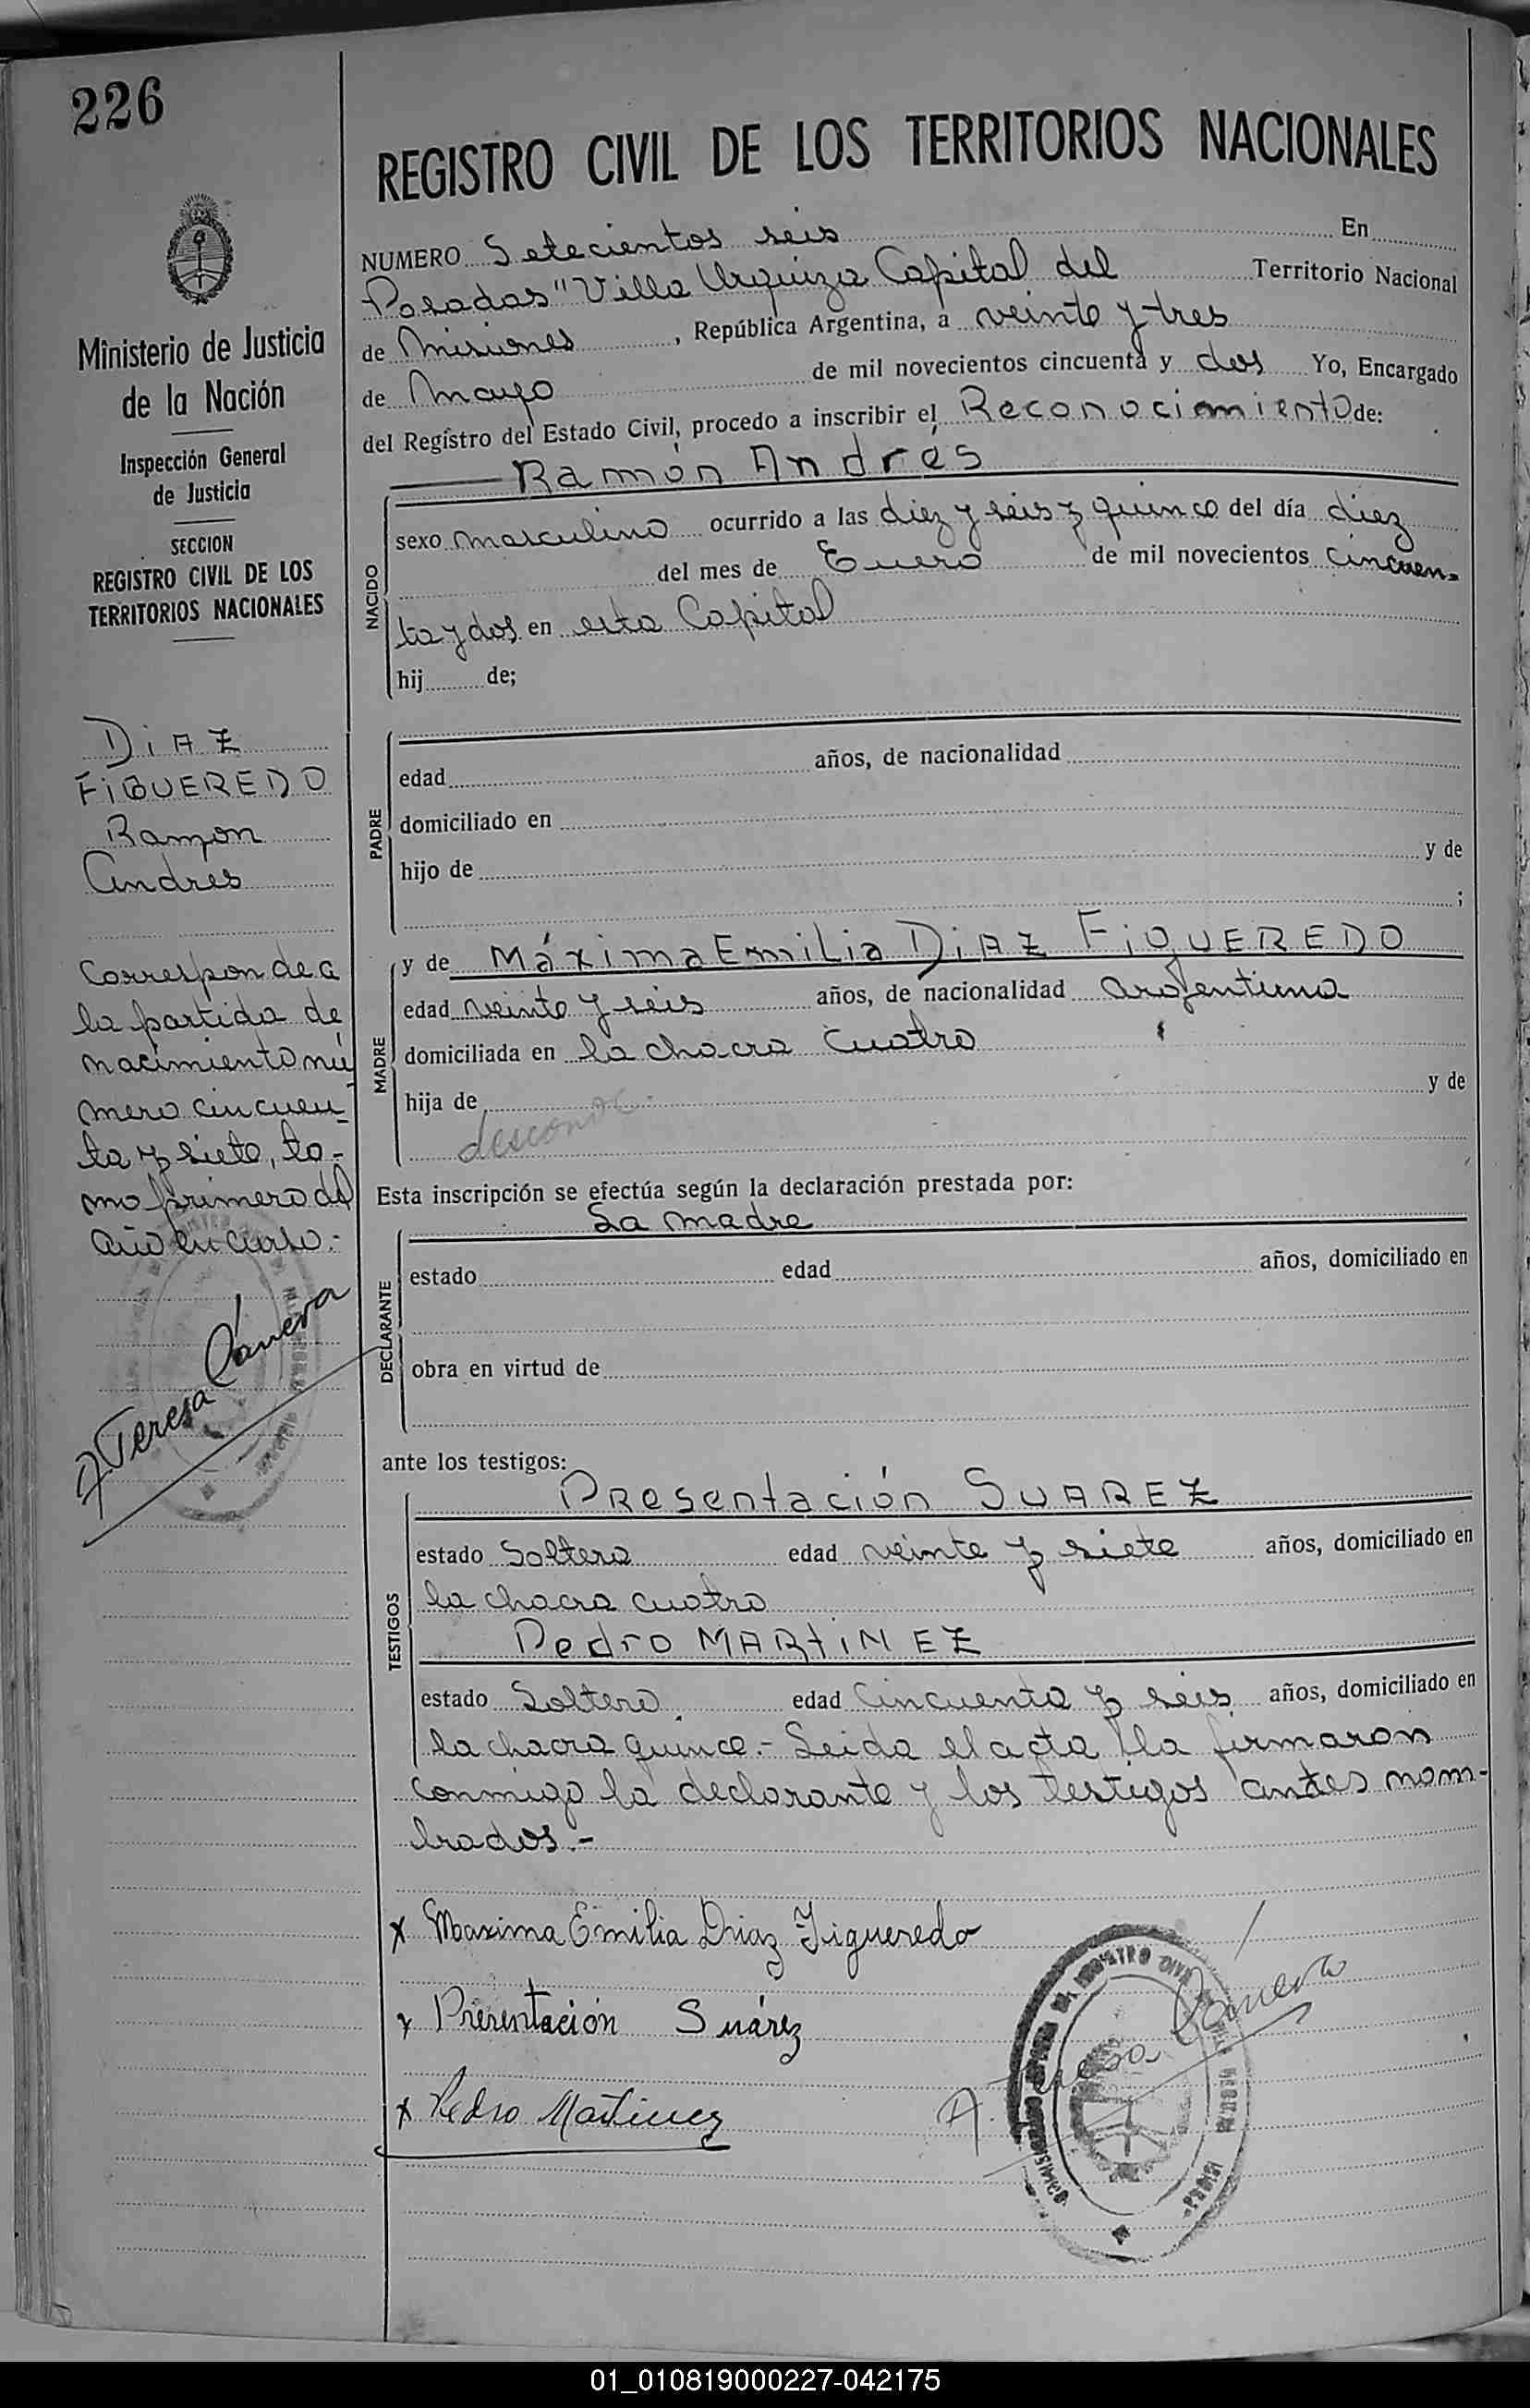 226
REGISTRO CIVIL DE LOS TERRITORIOS NACIONALES
Ministerio de Justicia
de la Nación
Inspección General
de Justicia
SECCION
REGISTRO CIVIL DE LOS
TERRITORIOS NACIONALES
DiAZ
FiGUEREDO
Ramon
Andres
Corresponde a
la partida de
nacimiento nú
mero cincuen-
ta y siete, to-
mo primero del
año en curso.-
A Teresa Cánera
NUMERO Setecientos seis En
Posadas "Villa Urquiza Capital del Territorio Nacional
de Misiones, República Argentina, a veinte y tres
de Mayo de mil novecientos cincuenta y dos Yo, Encargado
del Registro del Estado Civil, procedo a inscribir el Reconocimiento de:
Ramón Andrés
NACIDO
sexo masculino ocurrido a las diez y seis y quince del día diez
del mes de Enero de mil novecientos cincuen-
ta y dos en esta Capital
hij de;
PADRE
edad años, de nacionalidad
domiciliado en
hijo de y de
;
MADRE
y de Máxima Emilia DiAZ FiGUEREDO
edad veinte y seis años, de nacionalidad argentina
domiciliada en la chacra cuatro
hija de y de
desconoc.
Esta inscripción se efectúa según la declaración prestada por:
La madre
DECLARANTE
estado edad años, domiciliado en
obra en virtud de
ante los testigos:
TESTIGOS
Presentación SUAREZ
estado Soltero edad veinte y siete años, domiciliado en
la chacra cuatro
Pedro MARtiNEZ
estado Soltero edad Cincuenta y seis años, domiciliado en
la chacra quince.- Leida el acta lla firmaron
conmigo la declarante y los testigos antes nom-
brados.-
x Maxima Emilia Diaz Figueredo
x Presentación Suárez
x Pedro Martinez
01_010819000227-042175